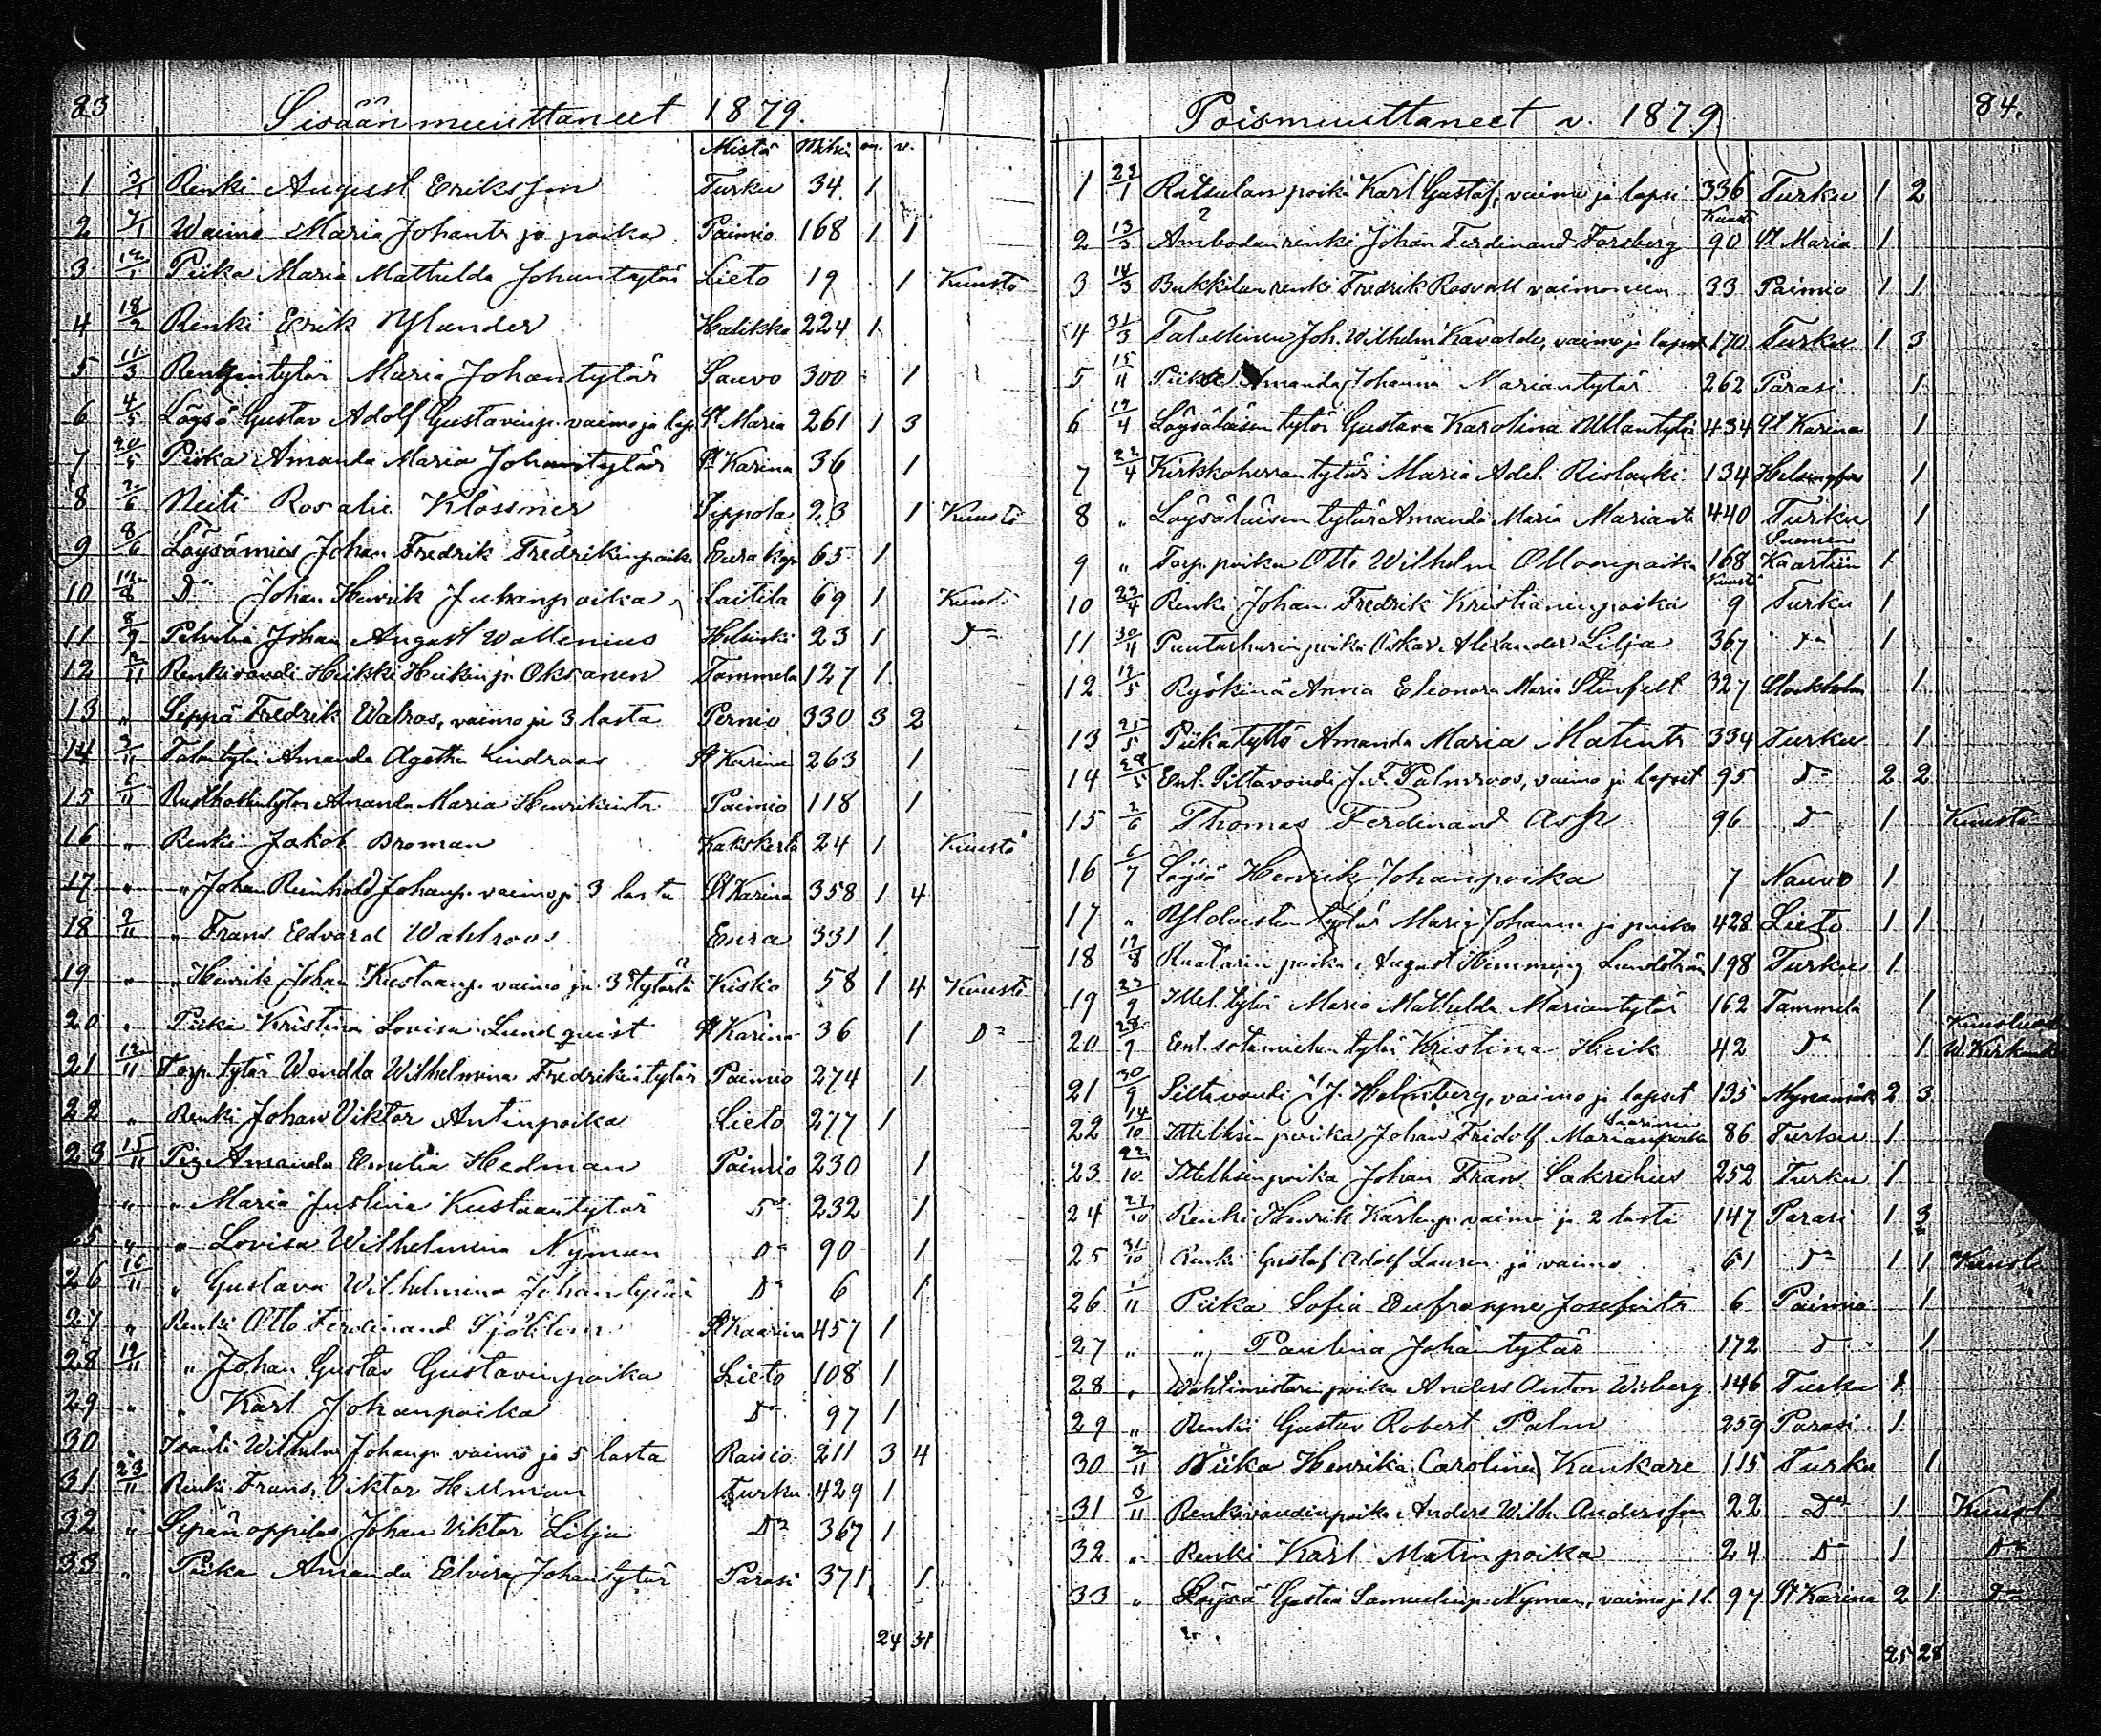 83 Sisäänmuuttaneet 1879.
Mistä Mihin m. v.
1 3/1 Renki August Eriksson Turku 34 1
2 7/1 Waimo Maria Johantr ja poika Paimio 168 1 1
3 12/1 Piika Maria Mathilda Johantytär Lieto 19 1 Kuusto
4 18/2 Renki Erik Ylander Halikko 224 1
5 11/3 Rengintytär Maria Johantytär Sauvo 300 1
6 4/5 Löysä Gustav Adolf Gustavinp. vaimo ja lap. St Maria 261 1 3
7 20/5 Piika Amanda Maria Johantytär St Karina 36 1
8 2/6 Neiti Rosalie Klossner Sippola 23 1 Kuusto
9 8/6 Löysämies Johan Fredrik Fredrikinpoika Eura kap 65 1
10 12/8 Do Johan Henrik Juhanpoika Laitila 69 1 Kuusto
11 8/9 Palvelia Johan August Wallenius Helsinki 23 1 Do
12 2/11 Renkivouti Heikki Heikinp. Oksanen Tammela 127 1
13 " Seppä Fredrik Walroos, vaimo ja 3 lasta Pernio 330 3 2
14 3/11 Talon tytär Amanda Agatha Lindroos St Karina 263 1
15 6/11 Rusthollintytär Amanda Maria Henrikintr. Paimio 118 1
16 " Renki Jakob Broman Kakskerta 24 1 Kuusto
17 " " Johan Reinhold Johanp. vaimo ja 3 lasta St Karina 358 1 4
18 9/11 " Frans Edvard Wahlroos Eura 331 1
19 " " Henrik Johan Kustaanp. vaimo ja 3 tytärtä Kisko 58 1 4 Kuusto
20 " Piika Kristina Lovisa Lundqvist St Karina 36 1 Do
21 12/11 Torp. tytär Wendla Wilhelmina Fredrikintytär Paimio 274 1
22 " Renki Johan Viktor Antinpoika Lieto 277 1
23 15/11 Pig. Amanda Emilia Hedman Paimio 230 1
" " Maria Justina Kustaantytär Do 232 1
25 " " Lovisa Wilhelmina Nyman Do 90 1
26 16/11 " Gustava Wilhelmina Johantytär Do 6 1
27 " Renki Otto Ferdinand Sjöblom St Kaarina 457 1
28 19/11 " Johan Gustav Gustavinpoika Lieto 108 1
29 " " Karl Johanpoika Do 97 1
30 " Isäntä Wilhelm Johanp. vaimo ja 5 lasta Raisio 211 3 4
31 23/11 Renki Frans Viktor Hellman Turku 429 1
32 " Sepänoppilas Johan Viktor Lilja Do 367 1
33 " Piika Amanda Elvira Johantytär Parasi 371 1
24 31
Poismuuttaneet v. 1879 84.
1 23/1 Ratsulan poika Karl Gustaf, vaimo ja lapsi 336 Turku 1 2
2 13/3 Ambodan renki Johan Ferdinand Forsberg Kuusto 90 St Maria 1
3 14/3 Bukkilan renki Fredrik Rosvall vaimoneen 33 Paimio 1 1
4 31/3 Talollinen Joh. Wilhelm Kavalder, vaimo ja lapset 170 Turku 1 3
5 15/11 Piika Amanda Johanna Mariantytär 262 Parasi 1
6 19/4 Löysäläisen tytär Gustava Karolina Ullantytär 434 St Karina 1
7 22/4 Kirkkoherran tytär Maria Adel. Rislacki 134 Helsingfors 1
8 " Löysäläisen tytär Amanda Maria Mariantr 440 Turku 1
9 " Torp. poika Otto Wilhelm Ottonpoika 168 Suomen Kaartiin 1
10 29/4 Renki Johan Fredrik Kristianinpoika Kuusto 9 Turku 1
11 30/4 Puutarhurin poika Oskar Alexander Lilja 367 Do 1
12 12/5 Ryökinä Anna Eleonora Maria Stenfelt 327 Stockholm 1
13 25/5 Piikatyttö Amanda Maria Matintr 334 Turku 1
14 29/5 Ent. Siltavouti J. F. Palmroos, vaimo ja lapset 95 Do 2 2
15 2/6 Thomas Ferdinand Asp 96 Do 1 Kuusto
16 6/7 Löysä Henrik Johanpoika 7 Nauvo 1
17 " tytär Maria Johanna ja poika 428 Lieto 1 1
18 12/8 poika August Hemming Lundström 198 Turku 1
19 22/9 Ittel. tytär Maria Mathilda Mariantytär 162 Tammela 1
20 28/9 Ent. sotamiehen tytär Kristina Heik 42 Do 1
21 30/9 Siltavouti J. J. Holmberg, vaimo ja lapset 135 Mynämäki 2 3
22 14/10 Ittellisen poika Johan Fridolf Marianpoika Saarinen 86 Turku 1
23 22/10 Ittellisenpoika Johan Frans Sakrelius 252 Turku 1
24 27/10 Renki Henrik Karlinp. vaimo ja 2 lasta 147 Parasi 1 3
25 31/10 Renki Gustaf Adolf Lauren ja vaimo 61 Do 1 1 Kuusto
26 1/11 Piika Sofia Eufrosyne Josefintr 6 Paimio 1
27 " " Paulina Johantytär 172 Do 1
28 " Wahtimestarin poika Anders Anton Wisberg 146 Turku 1
29 " Renki Gustav Robert Palm 259 Parasi 1
30 2/11 Piika Henrika Carolina Kankare 115 Turku 1
31 3/11 Renkivoudinpoika Anders Wilh. Andersson 22 Do 1 Kuusto
32 " Renki Karl Matinpoika 24 Do 1 Do
33 " Löysä Gustaa Samuelinp. Nyman, vaimo ja 1 l. 97 St Karina 2 1 Do
25 28